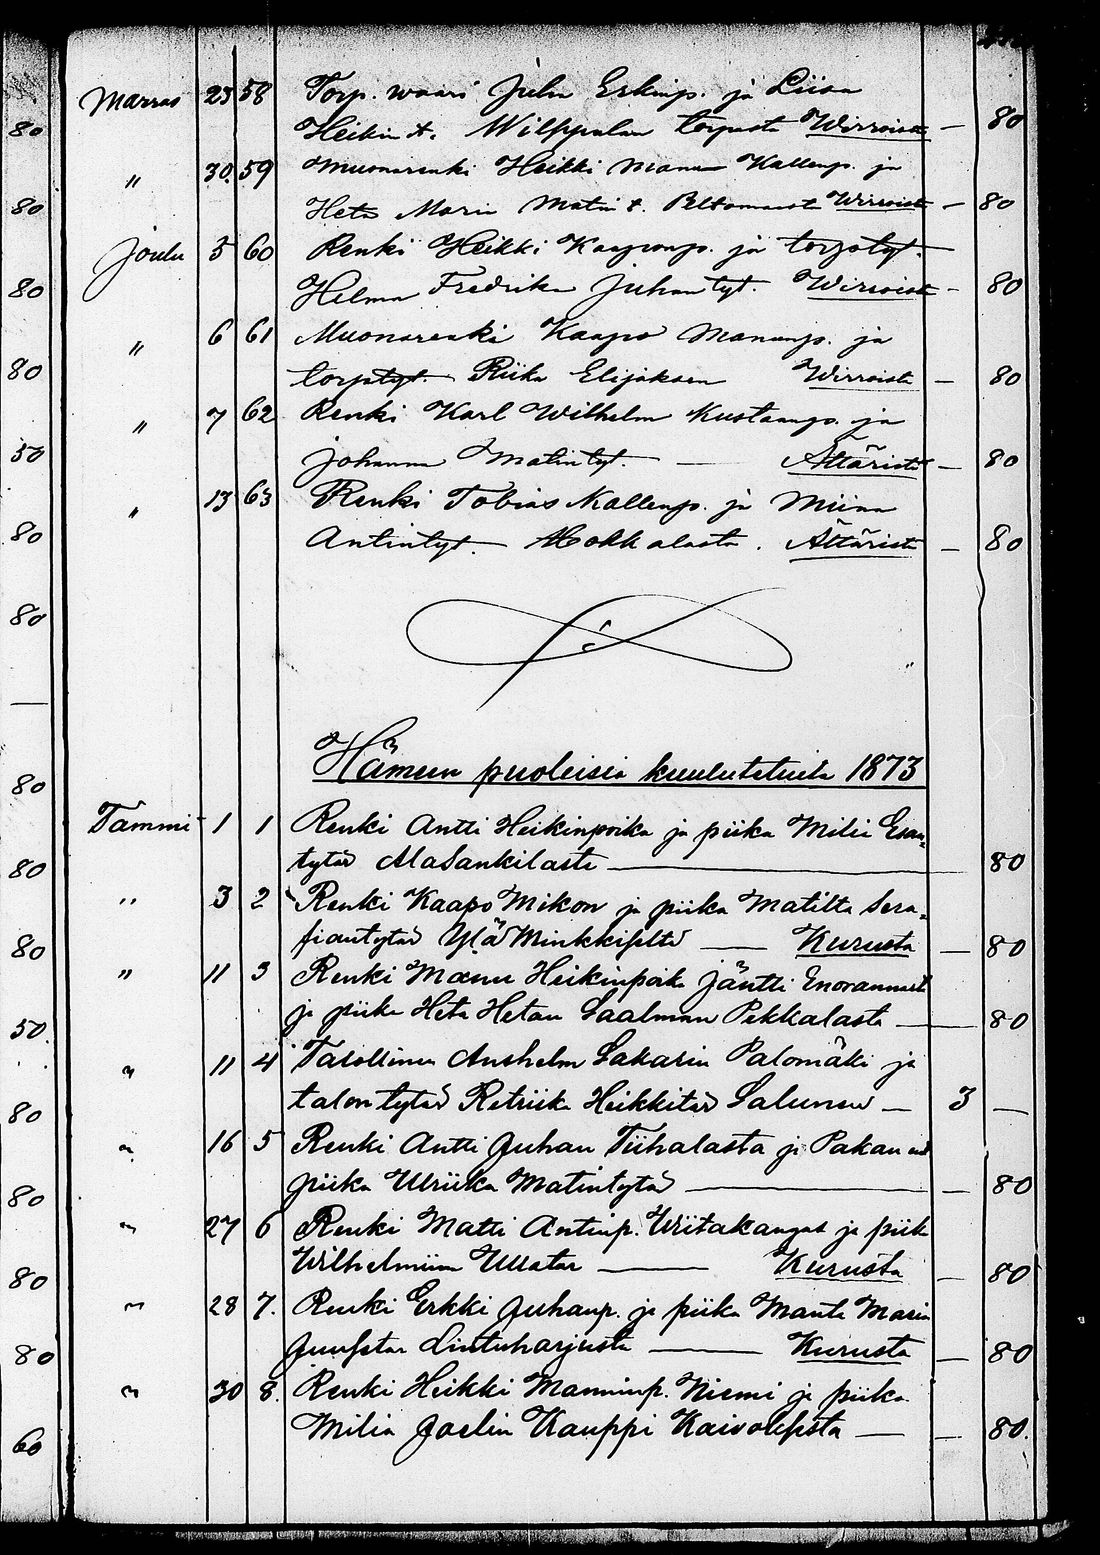 Marras 23 58 Torp. waari Juha Erkinp. ja Liisa
Heikin t. Wilppulan torpasta Wirroista — 80
" 30. 59 Muonarenki Heikki Manu Kallenp. ja
Heta Maria Matin t. Peltomaasta Wirroista — 80
Joulu 5 60 Renki Heikki Kaaponp. ja torp.tyt.
Helma Fredrika Juhan tyt. Wirroista — 80
" 6 61 Muonarenki Kaapo Manunp. ja
torp.tyt. Riika Elijaksen Wirroista — 80
" 7 62 Renki Karl Wilhelm Kustaanp. ja
Johanna Matintyt. — Ätsäristä — 80
" 13 63 Renki Tobias Kallenp. ja Miina
Antintyt. Hokkalasta. Ätsäristä — 80
Hämeen puoleisia kuulutetuita 1873
Tammi 1 1 Renki Antti Heikinpoika ja piika Milia Esan-
tytär AlaSankilasta — 80
" 3 2 Renki Kaapo Mikon ja piika Matilta Sera-
fiantytär YläMinkkifeltä — Kurusta — 80
" 11 3 Renki Manu Heikinpoika Jäntti Enorannasta
ja piika Heta Hetan Saalman Pekkalasta — 80
" 11 4 Talollinen Anshelm Sakarin Palomäki ja
talon tytär Retriika Heikkitär Salunen — 3 —
" 16 5 Renki Antti Juhan Tiihalasta ja Pakan
piika Ulriika Matintytär — 80
" 27 6 Renki Matti Antinp. Wiitakangas ja piika
Wilhelmiina Ullatar — Kurusta — 80
" 28 7. Renki Erkki Juhanp. ja piika Manta Maria
Juufstar Lintuharjusta — Kurusta — 80
" 30 8. Renki Heikki Manninp. Niemi ja piika
Milia Joelin Kauppi Kaivolepsta — — 80.
80
80
80
80
50
80
80
—
80
80
80
50.
80
80
80
80
60